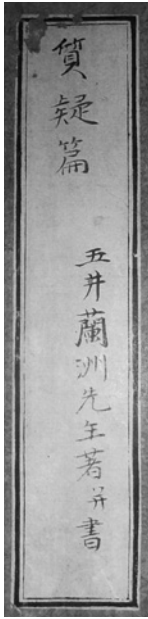 質疑篇
五井蘭洲先生著并書